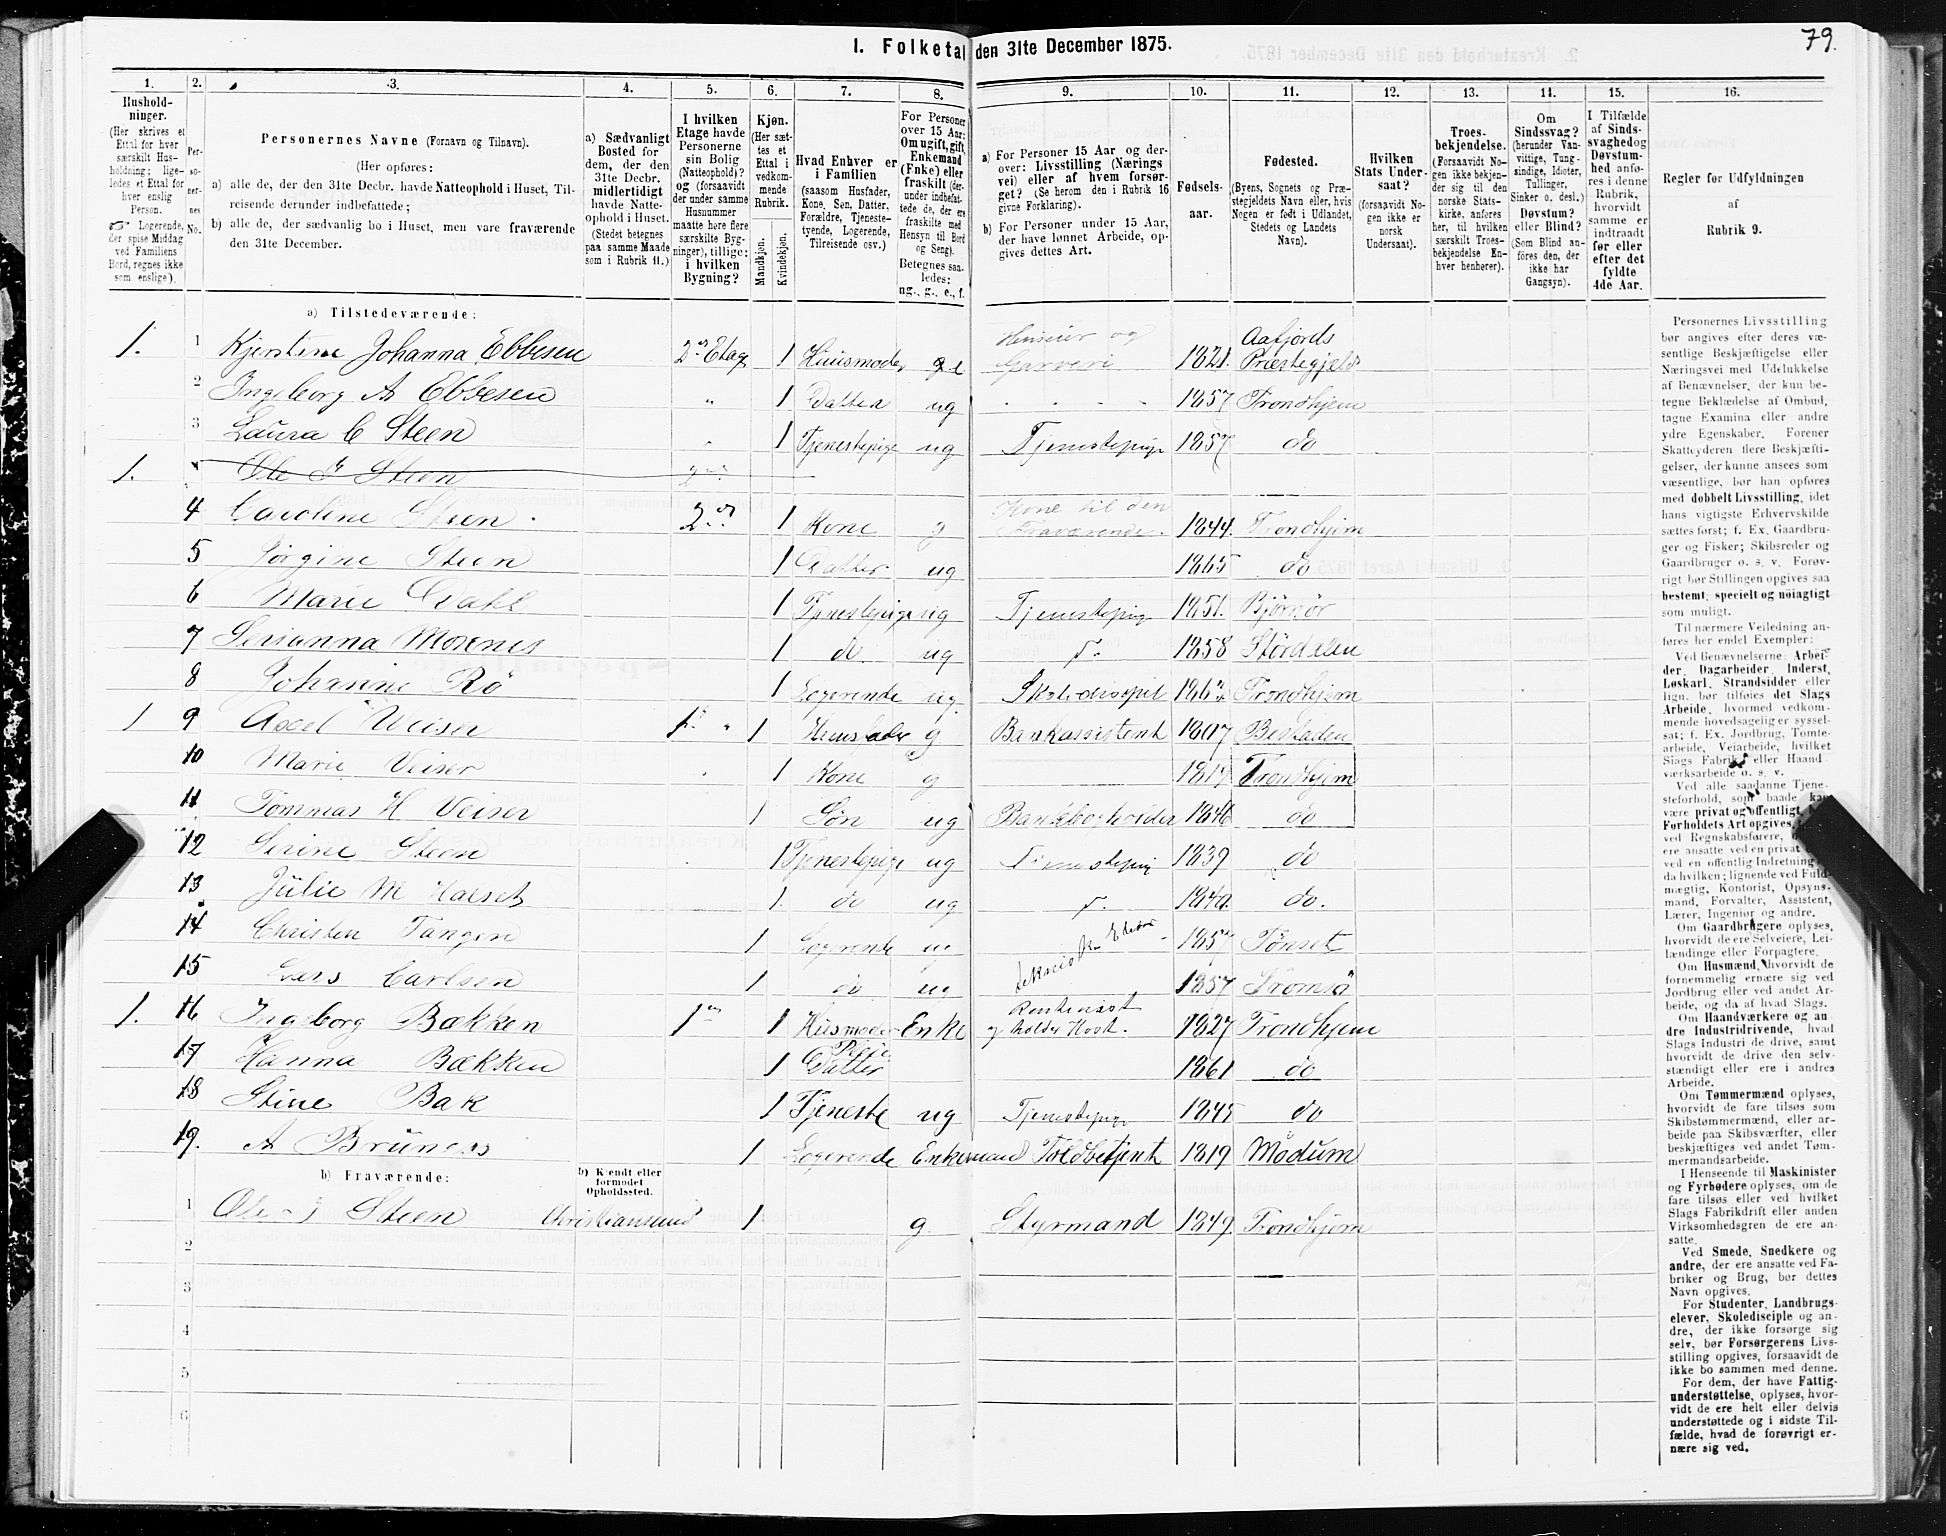 79.
I. Folketal den 31te December 1875.
1. 2. 3. 4. 5. 6. 7. 8. 9. 10. 11. 12. 13. 14. 15. 16.
Husholdninger.
(Her skrives et Ettal for hver særskilt Husholdning; ligeledes et Ettal for hver enslig Person.
Logerende, der spise Middag ved Familiens Bord, regnes ikke som enslige).
Personernes No.
Personernes Navne (Fornavn og Tilnavn).
(Her opføres:
a) alle de, der den 31te Decbr. havde Natteophold i Huset, Tilreisende derunder indbefattede;
b) alle de, der sædvanlig bo i Huset, men vare fraværende den 31te December.
a) Sædvanligt Bosted for dem, der den 31te Decbr. midlertidigt havde Natteophold i Huset.
(Stedet betegnes paa samme Maade som i Rubrik 11.)
I hvilken Etage havde Personerne sin Bolig (Natteophold)? og (forsaavidt der under samme Husnummer maatte høre flere særskilte Bygninger), tillige: i hvilken Bygning?
Kjøn.
(Her sættes et Ettal i vedkommende Rubrik.
Mandkjøn.
Kvindekjøn.
Hvad Enhver er i Familien
(saasom Husfader, Kone, Søn, Datter, Forældre, Tjenestetyende, Logerende, Tilreisende osv.)
For Personer over 15 Aar: Om ugift, gift, Enkemand (Enke) eller fraskilt (derunder indbefattede de, der ere fraskilte med Hensyn til Bord og Seng).
Betegnes saaledes: ug., g., e., f.
a) For Personer 15 Aar og derover: Livsstilling (Næringsvei) eller af hvem forsørget? (Se herom den i Rubrik 16 givne Forklaring).
b) For Personer under 15 Aar, der have lønnet Arbeide, opgives dettes Art.
Fødselsaar.
Fødested.
(Byens, Sognets og Præstegjeldets Navn eller, hvis Nogen er født i Udlandet, Stedets og Landets Navn).
Hvilken Stats Undersaat?
(forsaavidt Nogen ikke er norsk Undersaat).
Troesbekjendelse.
(Forsaavidt Nogen ikke bekjender sig til den norske Statskirke, anføres her, til hvilken særskilt Troesbekjendelse Enhver henhører).
Om Sindssvag? (herunder Vanvittige, Tungsindige, Idioter, Tullinger, Sinker o. desl.)
Døvstum? eller Blind?
(Som Blind anføres den, der ikke har Gangsyn).
I Tilfælde af Sindssvaghed og Døvstumhed anføres i denne Rubrik, hvorvidt samme er indtraadt før eller efter det fyldte 4de Aar.
Regler for Udfyldningen af Rubrik 9.
a) Tilstedeværende:
1. 1 Kjerstine Johanna Ebbesen 2den Etage 1 Huusmoder e Huseier og Garveri 1821. Aafjords Præstegjeld
2 Ingeborg A Ebbesen " 1 Datter ug 1857 Trondhjem
3 Laura C Steen 1 Tjenestepige ug Tjenestepige 1857 do
1. Ole J Steen
4 Caroline Steen 2den 1 Kone g Kone til den Fraværende 1844. Trondhjem
5 Jørgine Steen 1 Datter ug 1865 do
6 Marie Dahl 1 Tjenestepige ug Tjenestepige 1851. Bjørnør
7 Serianna Moxnes 1 do ug 1858 Størdalen
8 Johanne Rö 1 Logerende ug Skoledisipel Trondhjem
1 9 Axel Weiser 1 Huusfader g. Bankassistent 1807
10 Marie Veiser 1 Kone g Trondhjem
11 Tommas H Veiser 1 Søn ug Bankbogholder 1846 do
12 Serine Steen 1 Tjenestepige ug Tjenestepige 1839 do
13 Julie M Halset 1. do ug 1840. do.
14 Christen Tangen 1 Logerende ug 1857 Tønset
15 Lars Carlsen 1 do ug 1857 Tromsø
1. 16 Ingeborg Bækken 1ste 1 Husmoder Enke og holder Kost. 1827 Trondhjem
17 Hanna Bækken 1 Pleie Datter 1861 do
18 Stine Bak 1 Tjeneste ug Tjenestepige 1845 do
19. A 1 Logerende Enkemand Toldbetjent 1819 Modum
b) Fraværende:
b) Kjendt eller formodet Opholdssted.
1 Ole J Steen Christiansund 1 g. Styrmand 1849. Trondhjem
2
3
4
5
6
Personernes Livsstilling bør angives efter deres væsentlige Beskjæftigelse eller Næringsvei med Udelukkelse af Benævnelser, der kun betegne Beklædelse af Ombud, tagne Examina eller andre ydre Egenskaber. Forener Skatteyderen flere Beskjæftigelser, der kunne ansees som væsentlige, bør han opføres med dobbelt Livsstilling, idet hans vigtigste Erhvervskilde sættes først; f. Ex. Gaardbruger og Fisker; Skibsreder og Gaardbruger o. s. v. Forøvrigt bør Stillingen opgives saa bestemt, specielt og nøiagtigt som muligt.
Til nærmere Veiledning anføres her endel Exempler:
Ved Benævnelserne Arbeider, Dagarbeider, Inderst, Løskarl, Strandsidder eller lign. bør tilføies det Slags Arbeide, hvormed vedkommende hovedsagelig er sysselsat; f. Ex. Jordbrug, Tomtearbeide, Veiarbeide, hvilket Slags Fabrik eller Haandværksarbeide o. s. v.
Ved alle saadanne Tjenesteforhold, som baade kan være privat og offentligt, bør Forholdets Art opgives,
ved Regnskabsførere,
ere ansatte ved en privat
ved en offentlig Indretning
da hvilken; lignende ved Fuldmægtig, Kontorist, Opsynsmand, Forvalter, Assistent, Lærer, Ingeniør og andre.
Om Gaardbrugere oplyses, hvorvidt de ere Selveiere, Leilændinge eller Forpagtere.
Om Husmænd, hvorvidt de fornemmelig ernære sig ved Jordbrug eller ved andet Arbeide, og da af hvad Slags.
Om Haandværkere og andre Industridrivende, hvad Slags Industri de drive, samt hvorvidt de drive den selvstændigt eller ere i andres Arbeide.
Om Tømmermænd oplyses, hvorvidt de fare tilsøs som Skibstømmermænd, eller arbeide paa Skibsværfter, eller beskjæftiges ved andet Tømmermandsarbeide.
I Henseende til Maskinister og Fyrbødere oplyses, om de fare tilsøs eller ved hvilket Slags Fabrikdrift eller anden Virksomhedsgren de ere ansatte.
Ved Smede, Snedkere og andre, der ere ansatte ved Fabriker og Brug, bør dettes Navn opgives.
For Studenter, Landbrugselever, Skoledisciple og andre, der ikke forsørge sig selv, bør Forsørgerens Livsstilling opgives, forsaavidt de ikke bo sammen med denne.
For dem, der have Fattigunderstøttelse, oplyses, hvorvidt de ere helt eller delvis understøttede og i sidste Tilfælde, hvad de forøvrigt ernære sig ved.